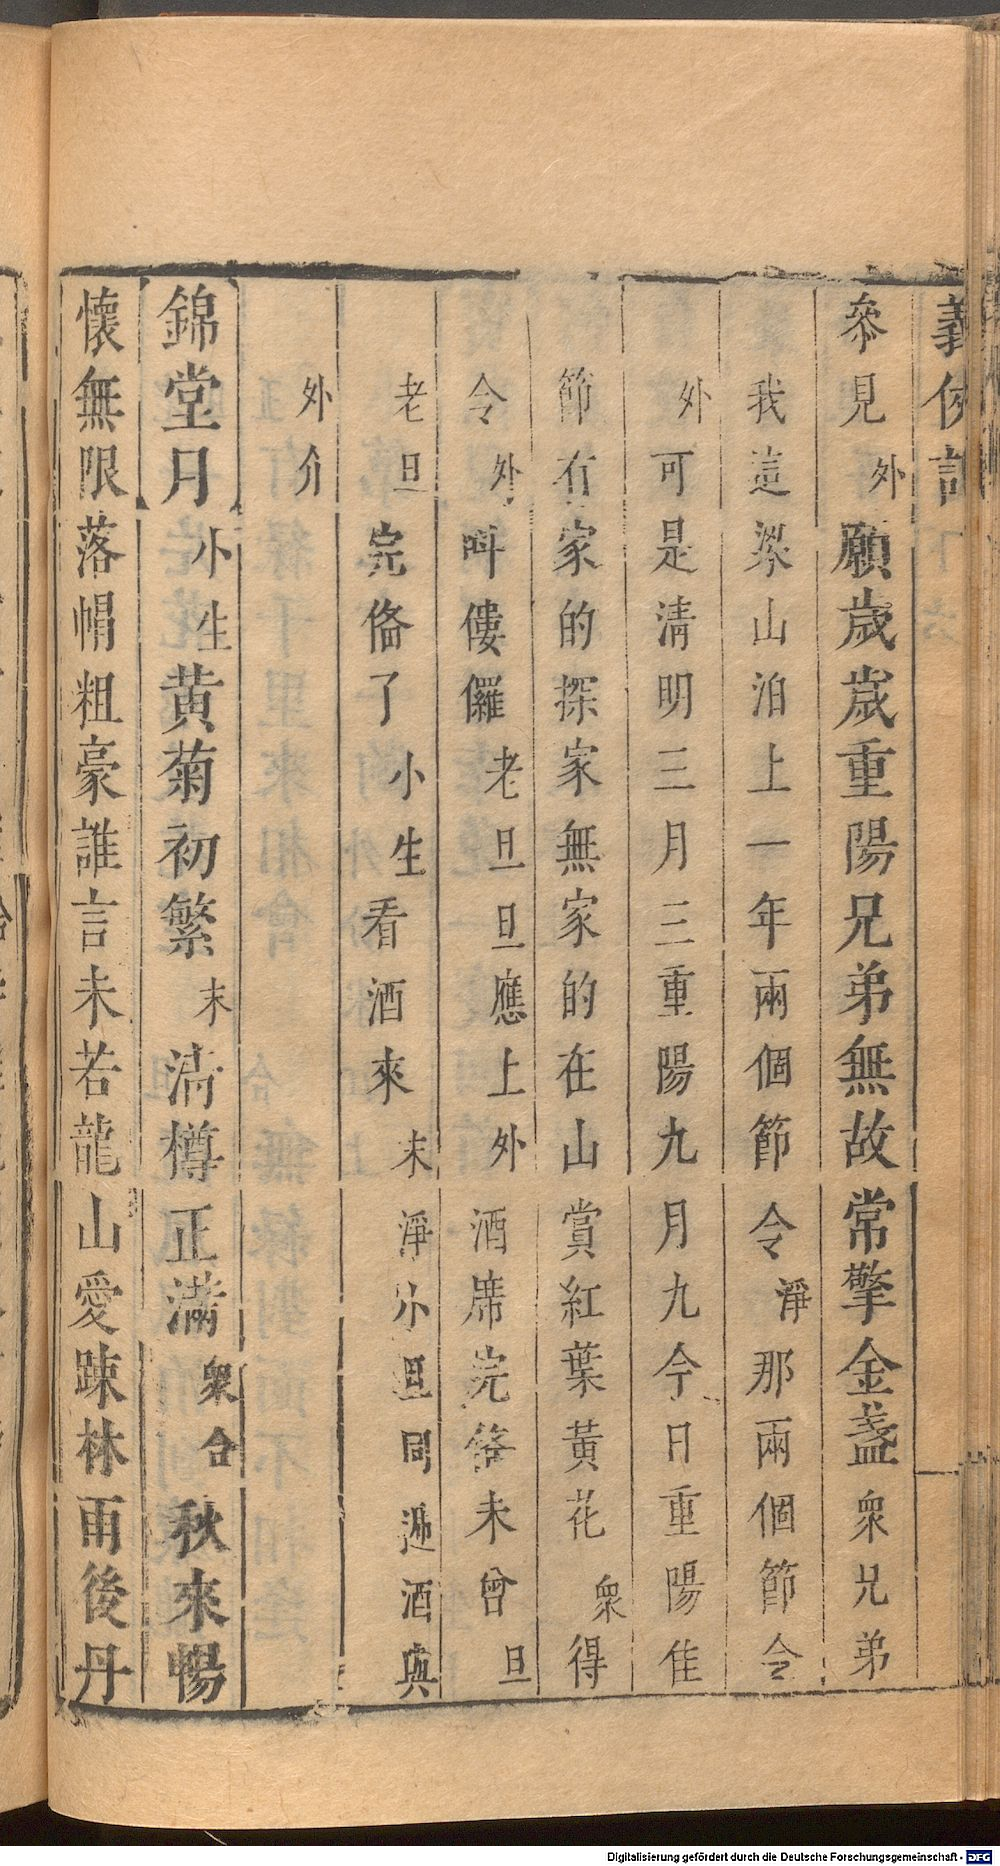 義俠記 下
叅見外願歲歲重陽兄弟無故常擎金盞衆兄弟
我這梁山泊上一年兩個節令淨那兩個節令
外可是淸明三月三重陽九月九今日重陽佳
節有家的探家無家的在山賞紅葉黃花衆得
令外呌僂儸老旦旦應上外酒席完俻未曾旦
老旦完俻了小生看酒來末淨小旦同遞酒與
外介
錦堂月小生黃菊初繁末淸樽正滿衆合秋來暢
懷無限落帽粗豪誰言未若龍山愛踈林雨後丹
Digitalisierung gefördert durch die Deutsche Forschungsgemeinschaft - DFG